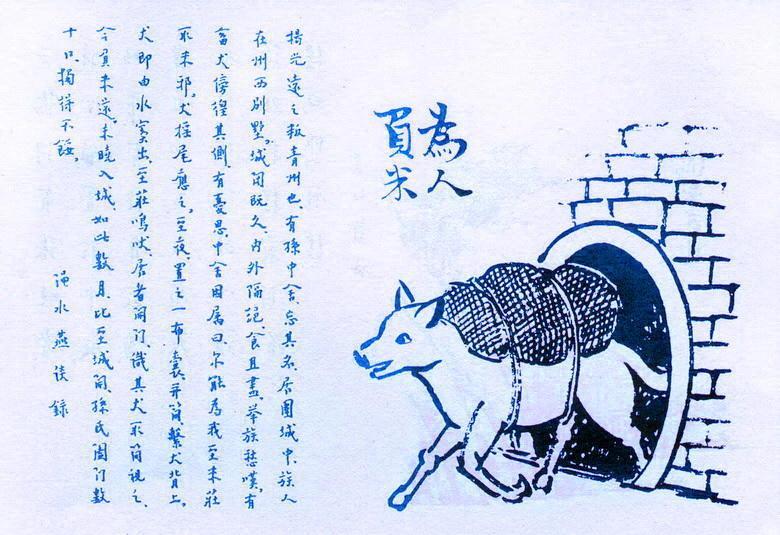 為人
買米
楊光遠之叛青州也、有孫中舍、忘其名、居圍城中、族人
在州西別墅。城閉既久、內外隔絕、食且盡、舉族愁嘆。有
畜犬傍徨其側、有憂思。中舍因屬曰、尔能為我至米莊
取米邪。犬搖尾應之。至夜、置之一布囊、并簡、繫犬背上。
犬即由水竇出、至莊鳴吠。居者開門、識其犬、取簡視之、
令負米還。未曉入城。如此數月、比至城開、孫氏闔門數
十口獨得不餒。
澠水燕談錄